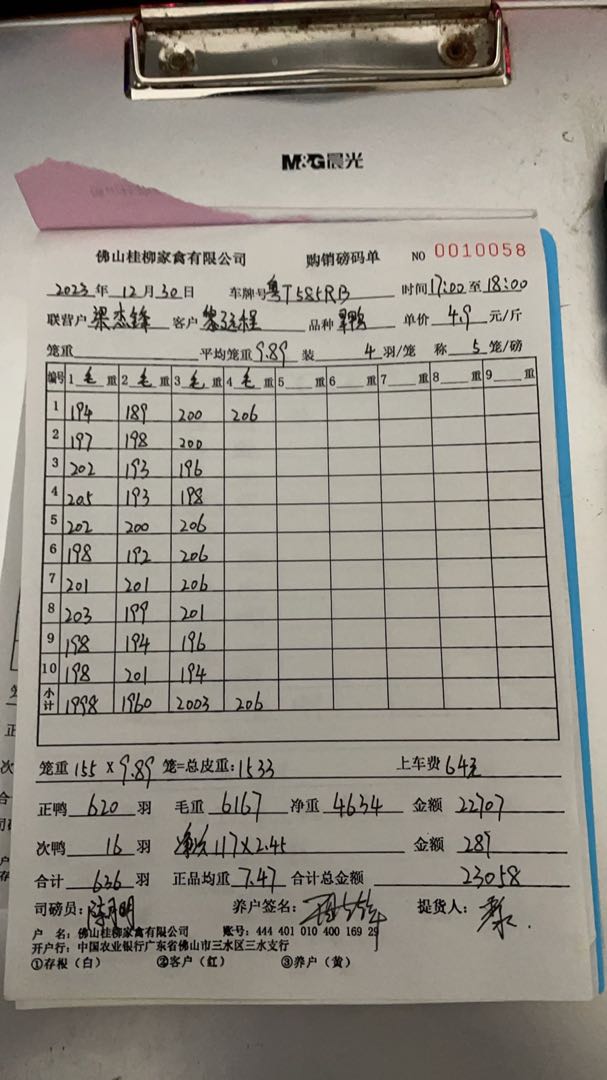 M&G晨光
佛山桂柳家禽有限公司 购销磅码单 NO 0010058
2023年 12月30日 车牌号 粤T585RB 时间17:00至18:00
联营户 梁杰锋 客户 品种 单价 4.9 元/斤
笼重 平均笼重9.89 装 4 羽/笼 称 5 笼/磅
编号 1 毛 重 2 毛 重 3 毛 重 4 毛 重 5 重 6 重 7 重 8 重 9 重
1 194 189 200 206
2 197 198 200
3 202 193 196
4 205 193 198
5 202 200 206
6 198 192 206
7 201 201 206
8 203 199 201
9 198 194 196
10 198 201 194
小计 1998 1960 2003 206
笼重 155 X 9.89 笼=总皮重: 1533 上车费 64元
正鸭 620 羽 毛重 6167 净重 4634 金额 22707
次鸭 16 羽 117X2.45 金额 287
合计 636 羽 正品均重 7.47 合计总金额 23058
司磅员: 养户签名: 提货人:
户 名: 佛山桂柳家禽有限公司 账号: 444 401 010 400 169 29
开户行: 中国农业银行广东省佛山市三水区三水支行
①存根（白） ②客户（红） ③养户（黄）